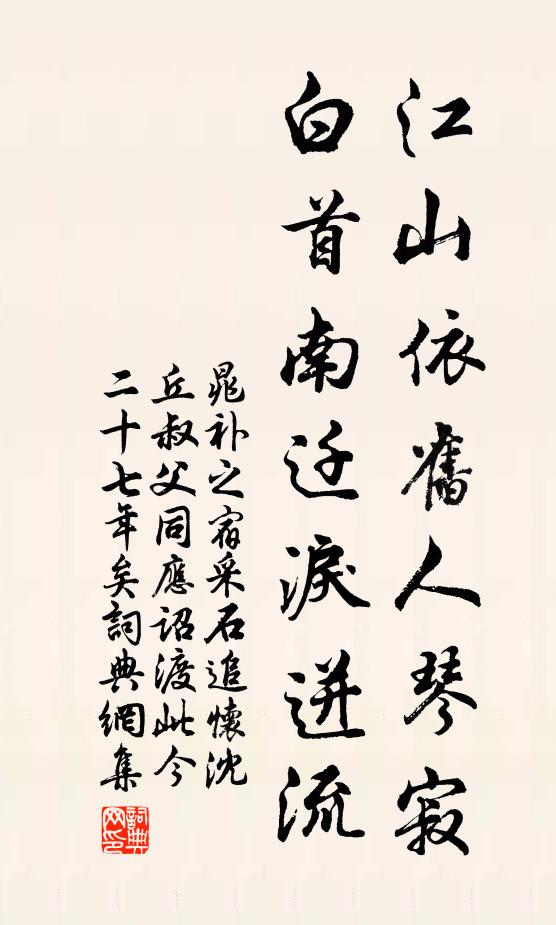 江山依舊人琴寂
白首南迁淚迸流
晁补之宿采石追懷沈
丘叔父同應詔渡此今
二十七年矣詞典網集
詞典
网印